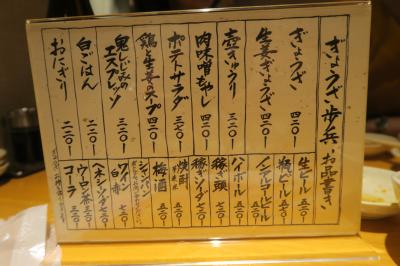 ぎょうざ歩兵 お品書き
ぎょうざ 四二〇
生姜ぎょうざ 四二〇
壺きゅうり 三二〇
肉味噌もやし 四二〇
ポテトサラダ 三七〇
鶏と生姜のスープ 四二〇
鬼しじみのエスプレッソ 三二〇
白ごはん 二二〇
おにぎり 二二〇
生ビール 五二〇
瓶ビール 五七〇
ノンアルコールビール
ハイボール 五二〇
稼ぎ頭
稼ぎソーダ 七二〇
焼酎
梅酒 五二〇
シャンパン
ワイン 白 赤 七二〇
ヘネシソーダ 七二〇
ウーロン茶 三二〇
コーラ 三二〇